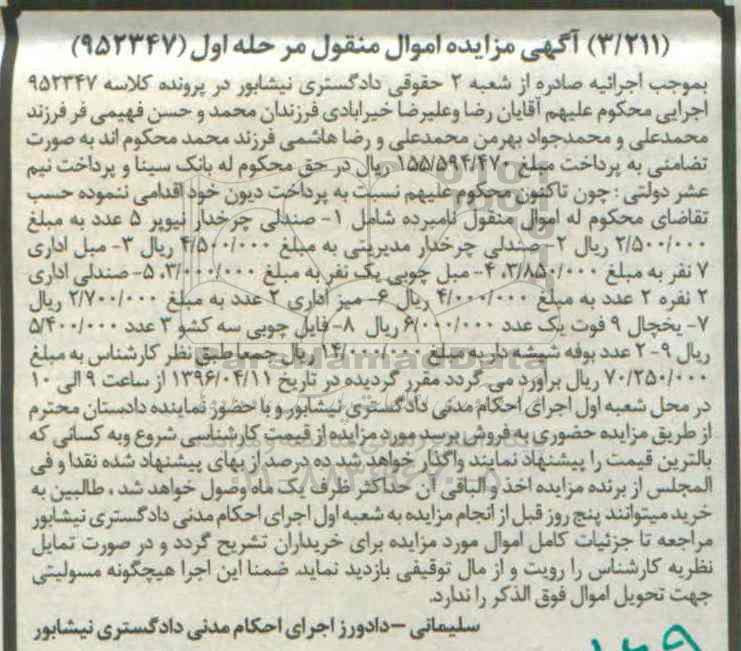 (۳/۲۱۱) آگهی مزایده اموال منقول مرحله اول (۹۵۲۳۴۷)
بموجب اجرائیه صادره از شعبه ۲ حقوقی دادگستری نیشابور در پرونده کلاسه ۹۵۲۳۴۷
اجرایی محکوم علیهم آقایان رضا وعلیرضا خیرابادی فرزندان محمد و حسن فهیمی فر فرزند
محمدعلی و محمدجواد بهرمن محمدعلی و رضا هاشمی فرزند محمد محکوم اند به صورت
تضامنی به پرداخت مبلغ ۱۵۵/۵۹۴/۴۷۰ ریال در حق محکوم له بانک سینا و پرداخت نیم
عشر دولتی : چون تاکنون محکوم علیهم نسبت به پرداخت دیون خود اقدامی ننموده حسب
تقاضای محکوم له اموال منقول نامبرده شامل ۱- صندلی چرخدار نیوپر ۵ عدد به مبلغ
۲/۵۰۰/۰۰۰ ریال ۲- صندلی چرخدار مدیریتی به مبلغ ۴/۵۰۰/۰۰۰ ریال ۳- مبل اداری
۷ نفر به مبلغ ۳/۸۵۰/۰۰۰، ۴- مبل چوبی یک نفر به مبلغ ۳/۰۰۰/۰۰۰، ۵- صندلی اداری
۲ نفره ۲ عدد به مبلغ ۴/۰۰۰/۰۰۰ ریال ۶- میز اداری ۲ عدد به مبلغ ۲/۷۰۰/۰۰۰ ریال
۷- یخچال ۹ فوت یک عدد ۶/۰۰۰/۰۰۰ ریال ۸- فایل چوبی سه کشو ۳ عدد ۵/۴۰۰/۰۰۰
ریال ۹- ۲ عدد بوفه شیشه دار به مبلغ ۱۴/۰۰۰/۰۰۰ ریال جمعا طبق نظر کارشناس به مبلغ
۷۰/۲۵۰/۰۰۰ ریال براورد می گردد مقرر گردیده در تاریخ ۱۳۹۶/۰۴/۱۱ از ساعت ۹ الی ۱۰
در محل شعبه اول اجرای احکام مدنی دادگستری نیشابور و با حضور نماینده دادستان محترم
از طریق مزایده حضوری به فروش برسد مورد مزایده از قیمت کارشناسی شروع وبه کسانی که
بالترین قیمت را پیشنهاد نمایند واگذار خواهد شد ده درصد از بهای پیشنهاد شده نقدا و فی
المجلس از برنده مزایده اخذ و الباقی آن حداکثر ظرف یک ماه وصول خواهد شد ، طالبین به
خرید میتوانند پنج روز قبل از انجام مزایده به شعبه اول اجرای احکام مدنی دادگستری نیشابور
مراجعه تا جزئیات کامل اموال مورد مزایده برای خریداران تشریح گردد و در صورت تمایل
نظریه کارشناس را رویت و از مال توقیفی بازدید نماید. ضمنا این اجرا هیچگونه مسولیتی
جهت تحویل اموال فوق الذکر را ندارد.
سلیمانی – دادورز اجرای احکام مدنی دادگستری نیشابور
ParsNamadData